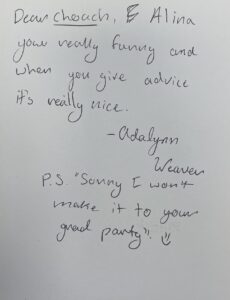 Dear choach, & Alina
your really funny and
when you give advice
it's really nice.
-Adalynn
Weaver
P.S. "Sorry I won't
make it to your
grad party".